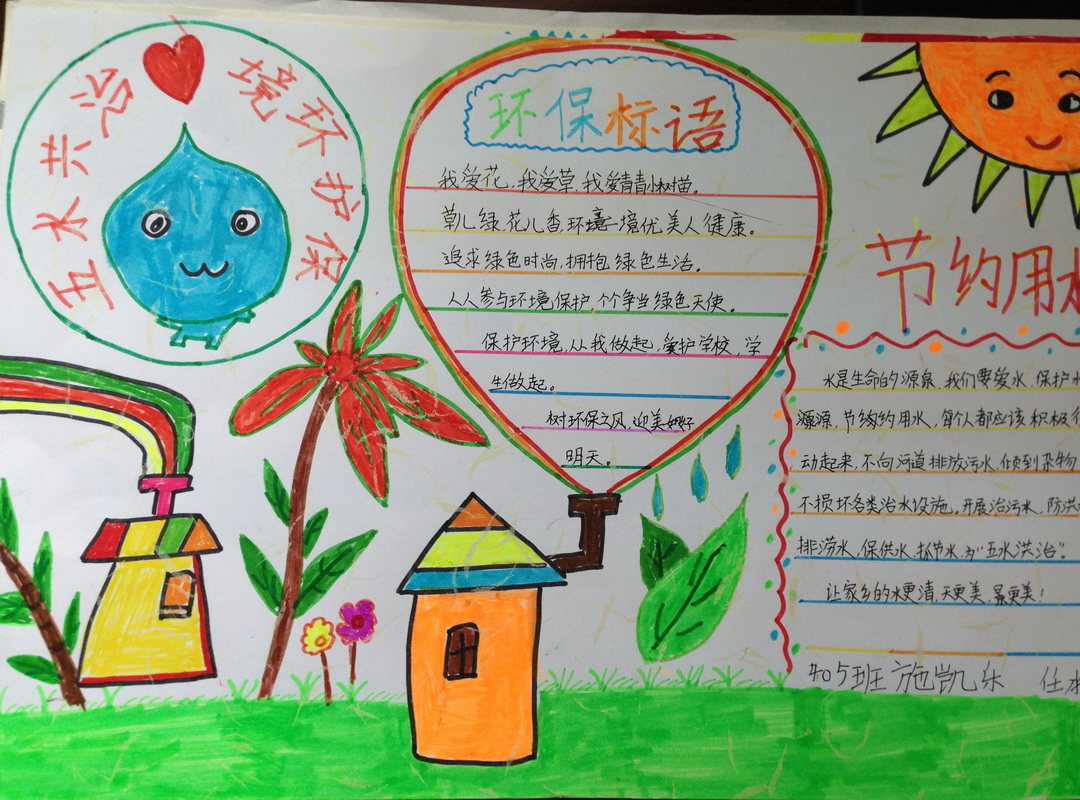 五水共治
境环护保
环保标语
我爱花,我爱草,我爱青青小树苗。
草儿绿,花儿香,环境优美人健康。
追求绿色时尚,拥抱绿色生活。
人人参与环境保护,个个争当绿色天使。
保护环境,从我做起,爱护学校,学
生做起。
树环保之风,迎美好
明天。
节约用水
水是生命的源泉,我们要爱水,保护水
源,节约用水,每个人都应该积极行
动起来,不向河道排放污水,倾到杂物
不损坏各类治水设施。开展治污水,防洪
排涝水,保供水,抓节水,为"五水洪治"。
让家乡的水更清,天更美,景更美!
405班 施凯乐